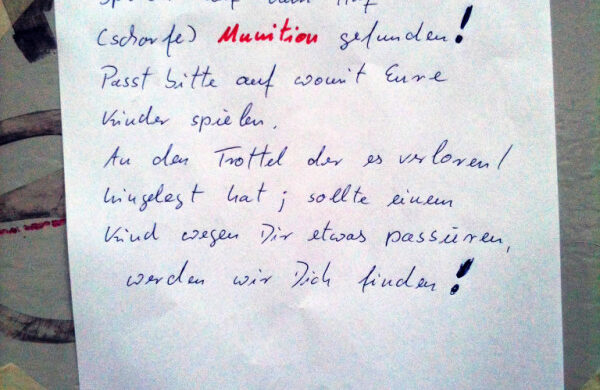 auf dem Hof
(scharfe) Munition gefunden!
Passt bitte auf womit Eure
Kinder spielen.
An den Trottel der es verloren/
hingelegt hat; sollte einem
Kind wegen Dir etwas passieren,
werden wir Dich finden!